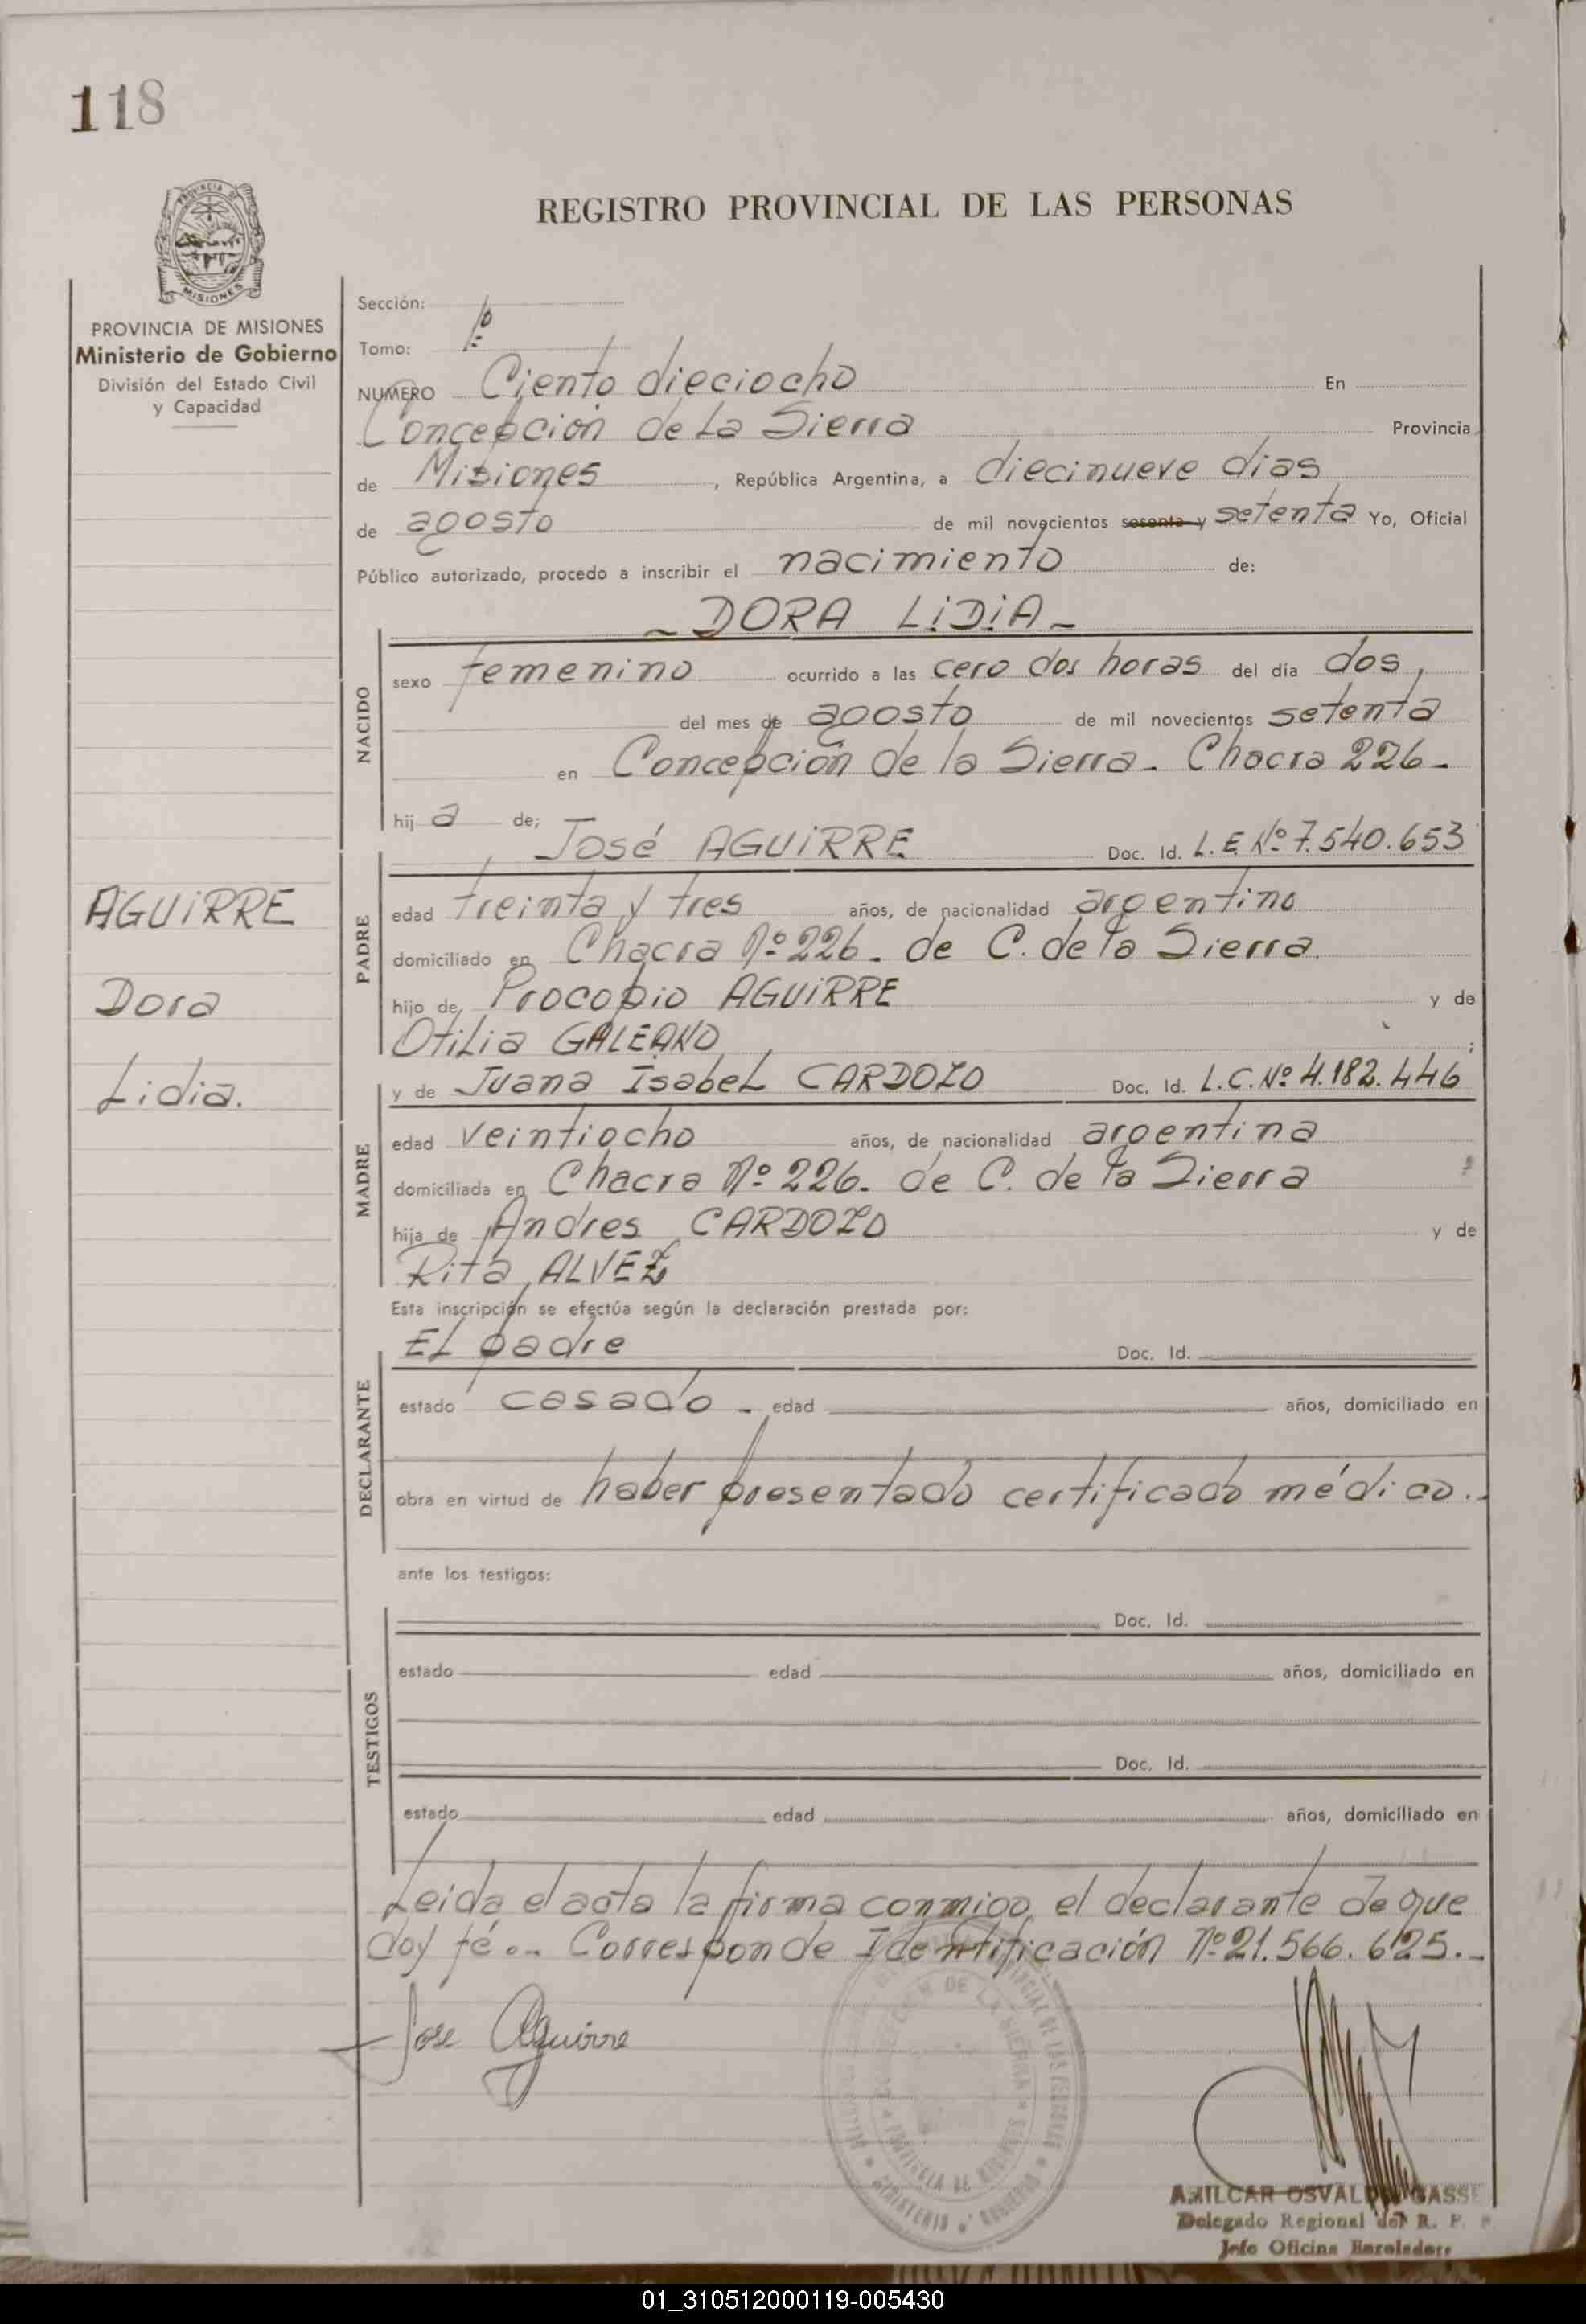 118
PROVINCIA DE
MISIONES
PROVINCIA DE MISIONES
Ministerio de Gobierno
División del Estado Civil
y Capacidad
REGISTRO PROVINCIAL DE LAS PERSONAS
Sección:
Tomo: 1º
NUMERO Ciento dieciocho En
Concepción de La Sierra Provincia
de Misiones, República Argentina, a diecinueve dias
de agosto de mil novecientos sesenta y setenta Yo, Oficial
Público autorizado, procedo a inscribir el nacimiento de:
- DORA LiDiA -
NACIDO
sexo femenino ocurrido a las cero dos horas del día dos,
del mes de agosto de mil novecientos setenta
en Concepción de la Sierra - Chacra 226 -
hij a de;
José AGUiRRE Doc. Id. L.E. Nº 7.540.653
AGUiRRE
Dora
Lidia.
PADRE
edad treinta y tres años, de nacionalidad argentino
domiciliado en Chacra Nº 226 - de C. de la Sierra.
hijo de Procopio AGUiRRE y de
OtiLia GALEANO ;
y de Juana IsabeL CARDOZO Doc. Id. L.C. Nº 4.182.446
MADRE
edad veintiocho años, de nacionalidad argentina
domiciliada en Chacra Nº 226 - de C. de la Sierra
hija de Andres CARDOZO y de
Rita ALVEZ
Esta inscripción se efectúa según la declaración prestada por:
EL padre Doc. Id.
DECLARANTE
estado casado - edad años, domiciliado en
obra en virtud de haber presentado certificado médico.-
ante los testigos:
TESTIGOS
Doc. Id.
estado edad años, domiciliado en
Doc. Id.
estado edad años, domiciliado en
Leida el acta la firma conmigo el declarante de que
doy fé.- Corresponde Identificación Nº 21.566.625.-
Jose Aguirre
AMILCAR OSVALDO GASSE
Delegado Regional del R. P. P.
Jefe Oficina Enroladora
01_310512000119-005430